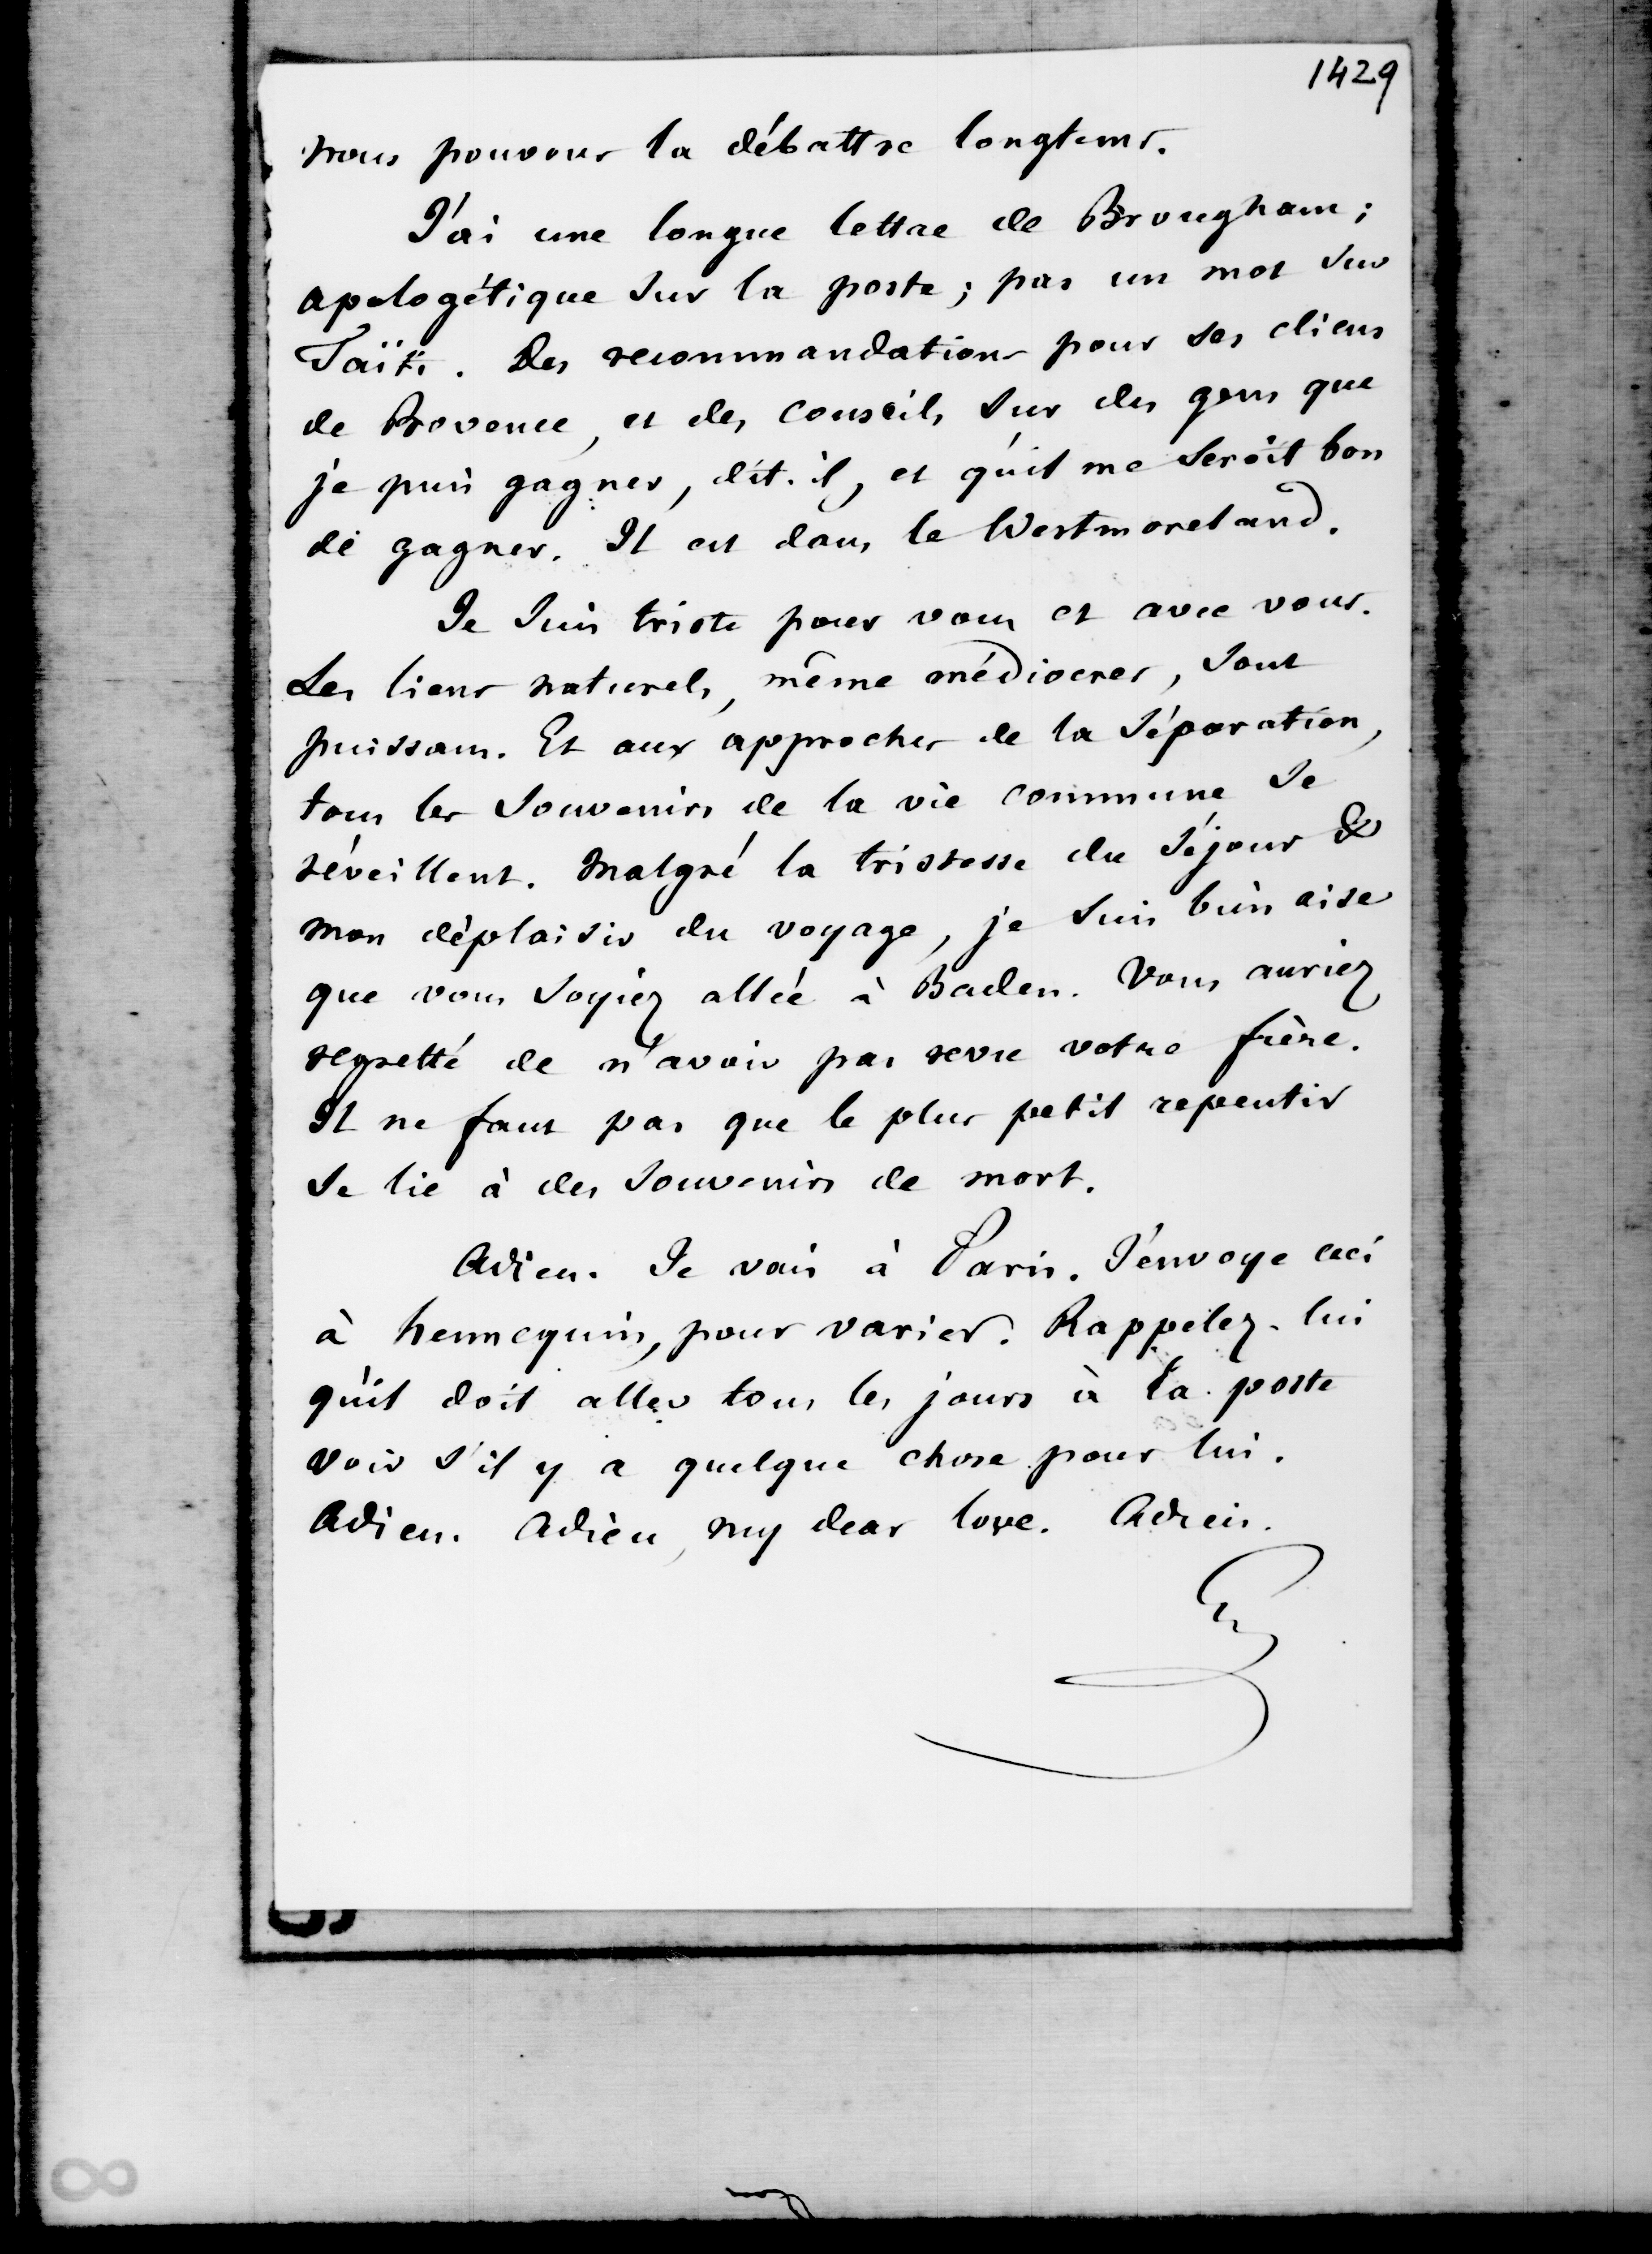 1429
nous pouvons la débattre longtems.
J'ai une longue lettre de Brougham;
apologétique sur la poste; pas un mot sur
Taïti. Des recommandations pour ses cliens
de Provence, et des conseils sur des gens que
je puis gagner, dit-il, et qu'il me seroit bon
de gagner. Il est dans le Westmoreland.
Je suis triste pour vous et avec vous.
Les liens naturels, même médiocres, sont
puissans. Et aux approches de la séparation,
tous les souvenirs de la vie commune se
réveillent. Malgré la tristesse du séjour &
mon déplaisir du voyage, je suis bien aise
que vous soyiez allée à Baden. Vous auriez
regretté de n'avoir pas revu votre frère.
Il ne faut pas que le plus petit repentir
se lie à des souvenirs de mort.
Adieu. Je vais à Paris. J'envoye ceci
à hennequin, pour varier. Rappelez-lui
qu'il doit aller tous les jours à la poste
voir s'il y a quelque chose pour lui.
Adieu. Adieu, my dear love. Adieu.
G